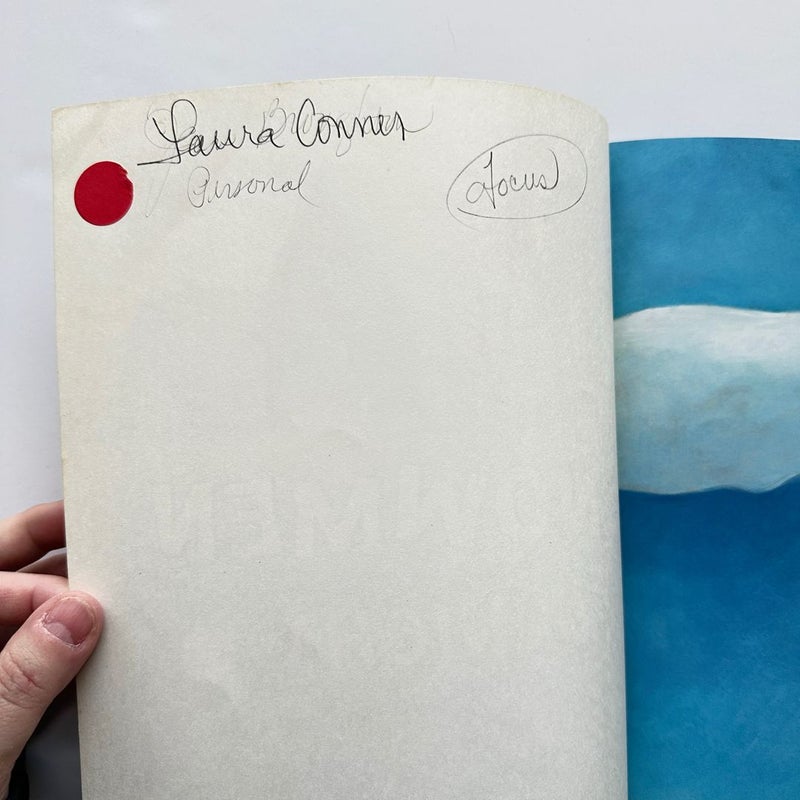 Laura Conner
Personal
Focus